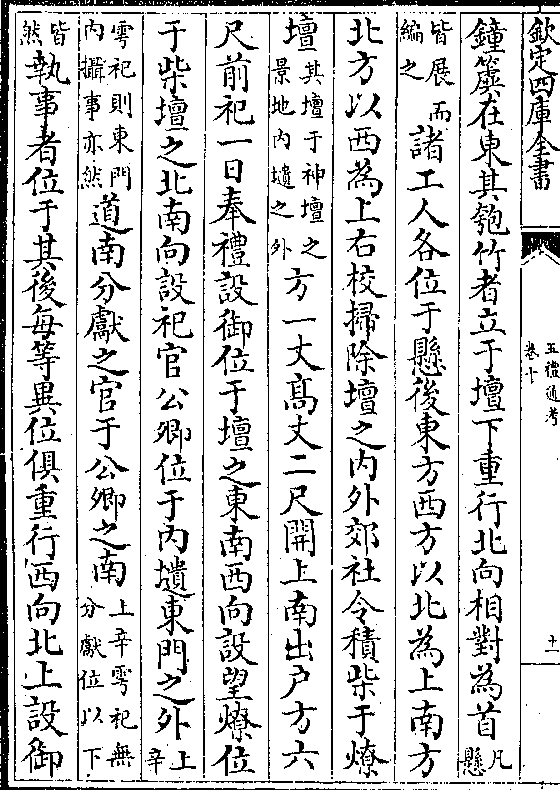 欽定四庫全書
五禮通考
卷十
十一
鐘簴在東其匏竹者立于壇下重行北向相對為首凡懸
皆展而編之諸工人各位于懸後東方西方以北為上南方
北方以西為上右校掃除壇之内外郊社令積柴于燎
壇其壇于神壇之景地内壝之外方一丈高丈二尺開上南出户方六
尺前祀一日奉禮設御位于壇之東南西向設望燎位
于柴壇之北南向設祀官公卿位于内壝東門之外上辛
雩祀則東門内攝事亦然道南分獻之官于公卿之南上辛雩祀無分獻位以下
皆然執事者位于其後每等異位俱重行西向北上設御